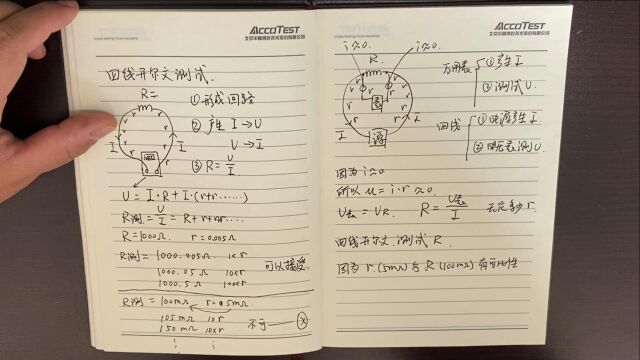 ACCOTEST
四线开尔文测试.
R=
r r r r r r
I I
① 形成回路
② 产生 I → U
U → I
③ R = U/I
U = I·R + I·(r+r……)
R测 = U/I = R + r+r……
R = 1000Ω r = 0.005Ω
R测 = 1000.005Ω 1×r
1000.05Ω 10×r
1000.5Ω 100×r
可以接受.
R测 = 100mΩ r = 5mΩ
105mΩ 1×r
150mΩ 10×r
不可
ACCOTEST
i≈0. i≈0.
R.
r r r r
I I
源
万用表 ① 产生 I
② 测试 U.
四线 ① 电源产生 I.
② 电压表测 U.
因为 i≈0
所以 u = i·r ≈0.
U表 = UR. R = U表/I 无论多少 r.
四线开尔文 测试 R.
因为 r (5mΩ) 与 R (100mΩ) 有可比性